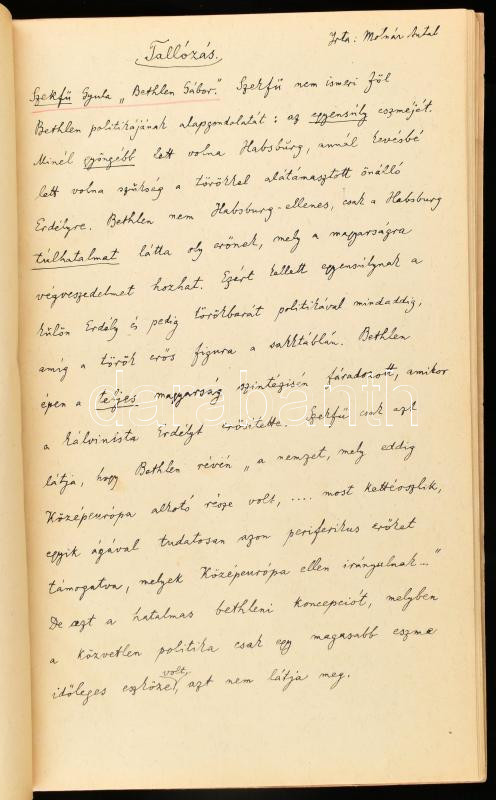 Írta: Molnár Antal
Tallózás.
Szekfű Gyula „Bethlen Gábor". Szekfű nem ismeri föl
Bethlen politikájának alapgondolatát: az egyensúly eszméjét.
Minél gyöngébb lett volna Habsburg, annál kevésbé
lett volna szükség a törökkel alátámasztott önálló
Erdélyre. Bethlen nem Habsburg-ellenes, csak a Habsburg
túlhatalmat látta oly erőnek, mely a magyarságra
végveszedelmet hozhat. Ezért kellett egyensúlynak a
külön Erdély és pedig törökbarát politikával mindaddig,
amíg a török erős figura a sakktáblán. Bethlen
épen a teljes magyarság szintézisén fáradozott, amikor
a kálvinista Erdélyt erősítette. Szekfű csak azt
látja, hogy Bethlen révén „a nemzet, mely eddig
Középeurópa alkotó része volt, .... most kettéoszlik,
egyik ágával tudatosan azon periferikus erőket
támogatva, melyek Középeurópa ellen irányulnak..."
De azt a hatalmas bethleni koncepciót, melyben
a közvetlen politika csak egy magasabb eszme
időleges eszköze volt, azt nem látja meg.
darabanth